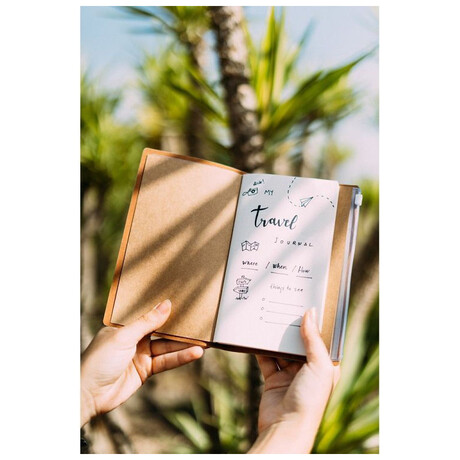 MY
travel
JOURNAL
Where / When / How
things to see